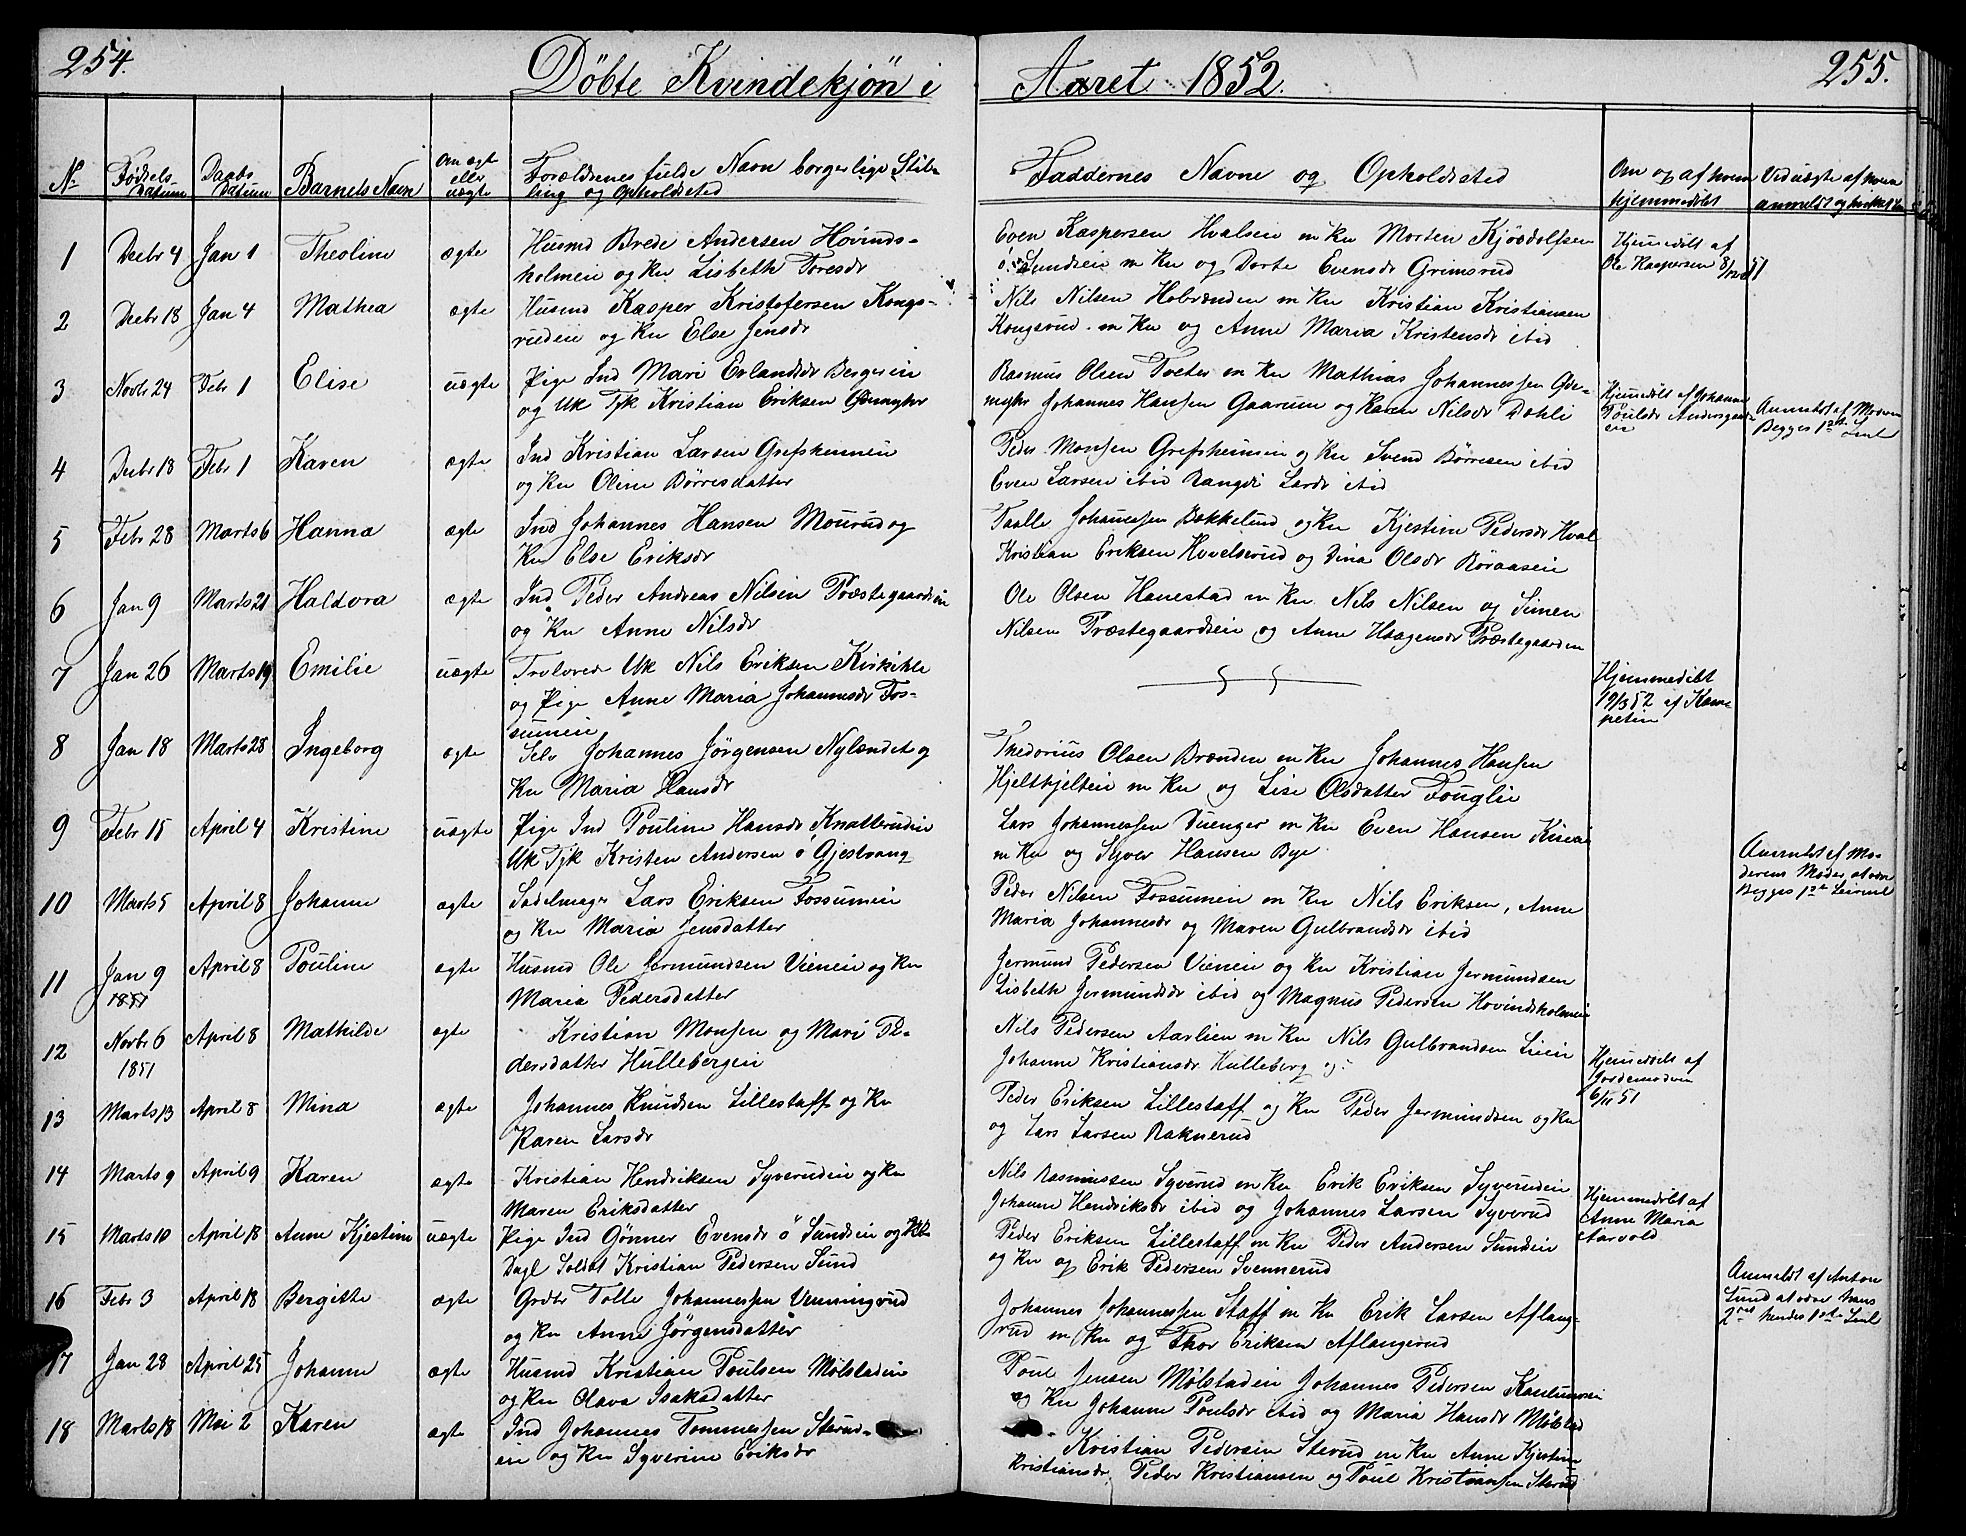 254.
Døbte Kvindekjøn i
Aaret 1852.
255.
No Fødsels Datum Daabs Datum Barnets Navn Om ægte eller uægte Forældrenes fulde Navn borgerlige Stilling og Opholdsted
Faddernes Navne og Opholdsted
Om og af hvem hjemmedøbt
Ved uægte af hvem anmeldt
1 Decbr 4 Jan 1 Theoline ægte Husmd Brede Andersen Hovinds-
holmeie og Kn Lisbeth Toresdr
Even Kaspersen Hvalseie m Kn Morten
Sundeie m Kn og Dorte Evensdr Grimsrud
Hjemedøbt af
Ole Kaspersen
2 Decbr 18 Jan 4 Mathea ægte Husmd Kasper Kristofersen Kongs-
rudeie og Kn Else Jensdr
Nils Nilsen m Kn Kristian Kristiansen
Kongsrud m Kn og Anne Maria Kristensdr ibid
3 Novbr 24 Febr 1 Elise uægte Pige Ind Mari Erlandsdr Bergerein
og Uk Tjk Kristian Eriksen
Rasmus Olsen Tveter m Kn Mathias Johannessen Øde-
Johannes Hansen Gaarum og Karen Nilsdr Dahli
Hjemedøbt af Johanne
Poulsdr
Anmeldt af Moderen
Begges 1st
4 Decbr 18 Febr 1 Karen ægte Ind Kristian Larsen Grefsheimeie
og Kn Oline Børresdatter
Peder Monsen Grefsheimeie og Kn Svend Børresen ibid
Even Larsen ibid Rangdi Larsdr ibid
5 Febr 28 Marts 6 Hanna ægte Ind Johannes Hansen Mourud og
Kn Else Eriksdr
Taalle Johannessen Bakkelund og Kn Kjestine Pedersdr Hval
Kristian Eriksen Hovelsrud og Dina Olsdr Boraaseie
6 Jan 9 Marts 21 Haldora ægte Ind Peder Andreas Nilsen Præstegaardseie
og Kn Anne Nilsdr
Ole Olsen Hanestad m Kn Nils Nilsen og Simen
Nilsen Præstegaardseie og Anne Haagensdr Præstegaarden
7 Jan 26 Marts 19 Emilie uægte Trolovede Uk Nils Eriksen
og Pige Anne Maria Johannesdr Fos-
sumeie
Hjemmedøbt
19/3 52 af
8 Jan 18 Marts 28 Ingeborg ægte Selv Johannes Jørgensen Nylændet og
Kn Maria Hansdr
Thedorius Olsen Brænden m Kn Johannes Hansen
m Kn og Lise Olsdatter
9 Febr 15 April 4 Kristine uægte Pige Ind Pouline Hansdr
Uk Tjk Kristen Andersen o Gjestvang
Lars Johannessen m Kn Even Hansen
m Kn og Syver Hansen Bye
Anmeldt af Mo-
derens Moder at være
Begges 1st Leieml
10 Marts 5 April 8 Johanne ægte Sadelmager Lars Eriksen Fossumeie
og Kn Maria Jensdatter
Peder Nilsen Fossumeie m Kn Nils Eriksen, Anne
Maria Johannesdr og Maren Gulbrandsdr ibid
11 Jan 9 1851 April 8 Pouline ægte Husmd Ole Jermundsen Vieneie og Kn
Maria Pedersdatter
Jermund Pedersen Vieneie og Kn Kristian Jermundsen
Lisbeth Jermundsdr ibid og Magnus Pedersen Hovindsholmeie
12 Novbr 6 1851 April 8 Mathilde ægte Kristian Monsen og Mari Pe-
dersdatter Hullebergeie
Nils Pedersen Aarlien m Kn Nils Gulbrandsen Lieie
Johanne Kristiansdr Hulleberg og
Hjemedøbt af
Jordemoderen
6/11 51
13 Marts 13 April 8 Mina ægte Johannes Knudsen Lillestaff og Kn
Karen Larsdr
Peder Eriksen Lillestaff og Kn Peder Jermundsen og Kn
og Lars Larsen Baknerud
14 Marts 9 April 9 Karen ægte Kristian Hendriksen Syverudeie og Kn
Maren Eriksdatter
Nils Rasmussen Syverud m Kn Erik Eriksen Syverudeie
Johanne Hendriksdr ibid og Johannes Larsen Syverud
Hjemmedøbt af
Anne Maria
15 Marts 10 April 18 Anne Kjestine uægte Pige Ind Gønner Evensdr o Sundeie og Uk
Dagl Soldat Kristian Pedersen Sund
Peder Eriksen Lillestaff m Kn Peder Andersen Sundeie
og Kn og Erik Pedersen Svennerud
Anmeldt af Anton
Sund at være hans
2det hendes 1ste
16 Febr 3 April 18 Bergitte ægte Grdbr Tolle Johannessen Venningrud
og Kn Anne Jørgensdatter
Johannes Johannessen Staff m Kn Erik Larsen Aflang-
rud m Kn og Thor Eriksen Aflangerud
17 Jan 28 April 25 Johanne ægte Husmd Kristian Poulsen Mølstadeie
og Kn Olava Isaksdatter
Poul Jensen Mølstadeie Johannes Pedersen
og Kn Johanne Poulsdr ibid og Maria Hansdr Mølstad
18 Marts 18 Mai 2 Karen ægte Ind Johannes Tommessen Sterud-
eie og Kn Syverine Eriksdr
Kristian Pedersen Sterud m Kn Anne Kjestine
Kristiansdr, Peder Kristiansen og Poul Kristiansen Sterud